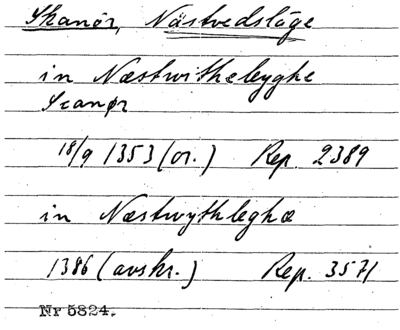 Skanör, Nästvedsläge
in Næstwithelegghe
Scanør
18/9 1353 (or.) Rep. 2389
in Næstwythleghæ
1386 (avskr.) Rep. 3571
Nr 5824.